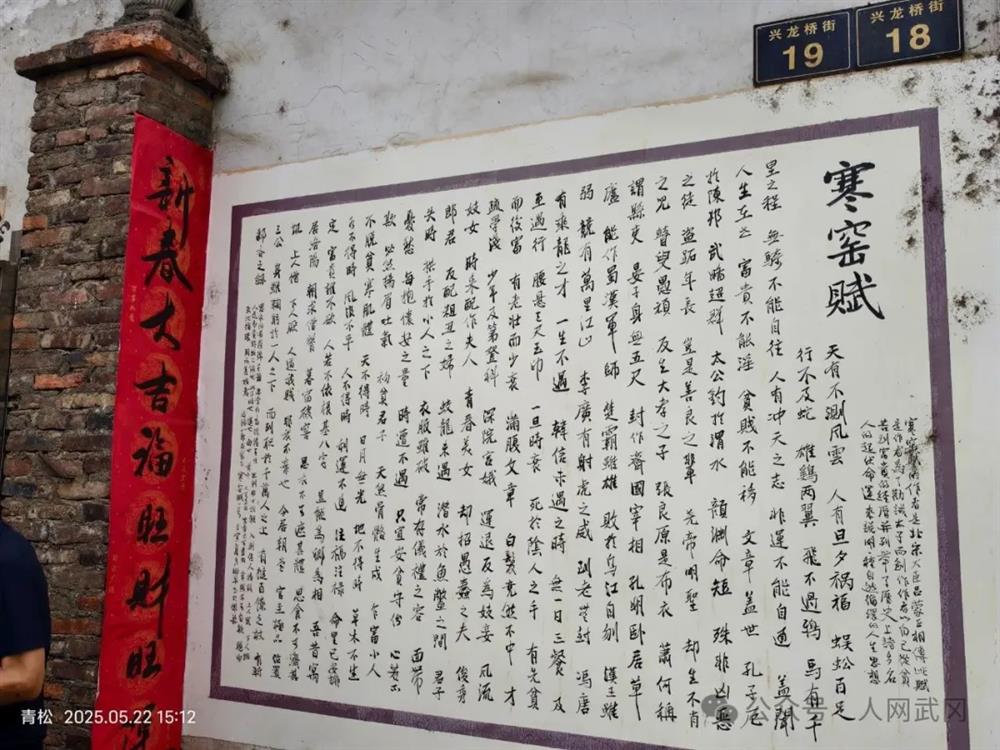 兴龙桥街
19
兴龙桥街
18
寒窑赋
寒窑赋的作者是北宋大臣吕蒙正相傳此赋
是作者為了勸誡太子而創作作者以自己從貧
苦到富貴的經歷并列举了歷史上諸多名
人的起伏命運來說明種自然循環的人生思想
天有不測风雲 人有旦夕祸福 蜈蚣百足
行不及蛇 雄鷄两翼 飛不過鸦 马有千
里之程 無騎不能自往 人有冲天之志 非運不能自通 盖聞
人生在世 富貴不能淫 貧賎不能移 文章盖世 孔子厄
於陳邦 武畧超群 太公釣於渭水 顏渊命短 殊非凶惡
之徒 盗跖年長 豈是善良之輩 尧帝明聖 却生不肖
之兒 瞽叟愚頑 反生大孝之子 張良原是布衣 蕭何稱
謂縣吏 晏子身無五尺 封作齊國宰相 孔明卧居草
廬 能作蜀漢軍師 楚霸雖雄 敗於乌江自刎 漢王雖
弱 竟有萬里江山 李廣有射虎之威 到老無封 冯唐
有乘龍之才 一生不遇 韓信未遇之時 無一日三餐 及
至遇行 腰悬三尺玉印 一旦時衰 死於陰人之手 有先貧
而後富 有老壮而少衰 滿腹文章 白髮竟然不中 才
疏学浅 少年及第登科 深院宫娥 運退反為妓妾 风流
妓女 時来配作夫人 青春美女 却招愚蠢之夫 俊秀
郎君 反配粗丑之婦 蛟龍未遇 潜水於魚鱉之間 君子
失時 拱手於小人之下 衣服雖破 常存儀禮之容 面带
憂愁 每抱懷安之量 時遭不遇 只宜安貧守份 心若不
欺 必然揚眉吐氣 初貧君子 天然骨骼生成 乍富小人
不脱貧寒肌體 天不得時 日月無光 地不得時 草木不生
水不得時 风浪不平 人不得時 利運不通 注福注禄 命里已安排
定 富貴誰不欲 人若不依根基八字 豈能為卿為相 吾昔寓
居洛陽 朝求僧餐 暮宿破窑 思衣不可遮其體 思食不可濟其
饥 上人憎 下人厭 人道我賎 非我不棄也 今居朝堂 官至極品 位置
三公 身雖鞠躬於一人之下 而列职於千萬人之上 有撻百僚之杖 有斩
鄙吝之劍
新春大吉福旺财旺
青松 2025.05.22 15:12
公众号 人网武冈